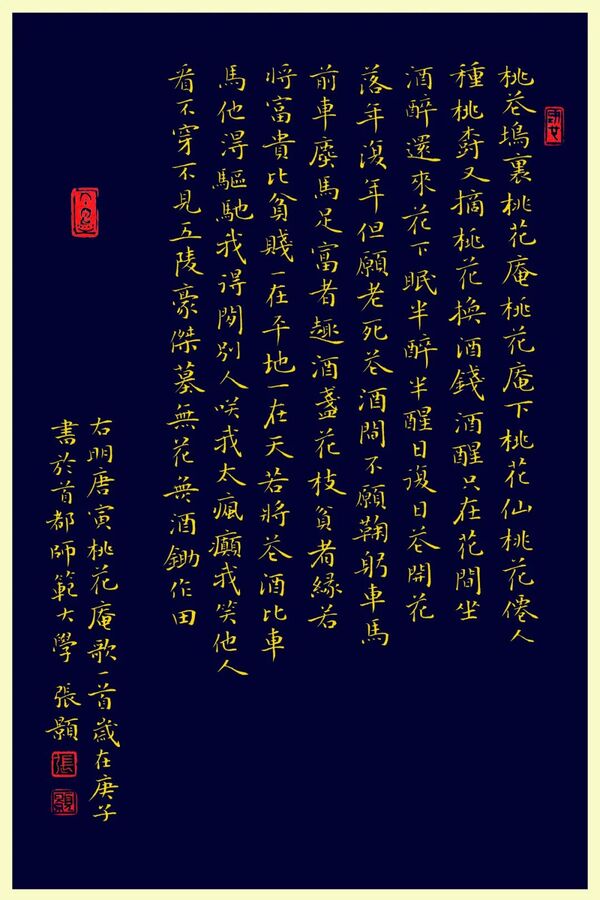 桃花塢裏桃花庵桃花庵下桃花仙桃花僊人
種桃樹又摘桃花換酒錢酒醒只在花間坐
酒醉還來花下眠半醉半醒日復日花開花
落年復年但願老死花酒間不願鞠躬車馬
前車塵馬足富者趣酒盞花枝貧者緣若
將富貴比貧賤一在平地一在天若將花酒比車
馬他得驅馳我得閒別人咲我太瘋癲我笑他人
看不穿不見五陵豪傑墓無花無酒鋤作田
右明唐寅桃花庵歌一首歲在庚子
書於首都師範大學 張顥
張
顥